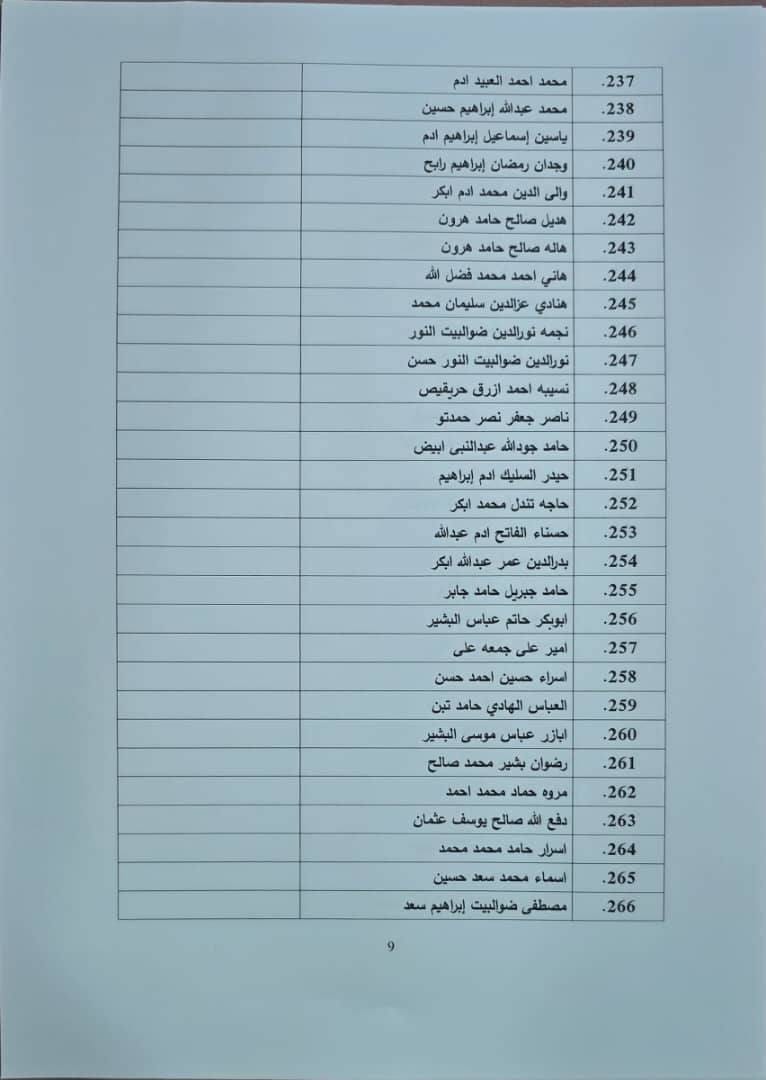 .237 محمد احمد العبيد ادم
.238 محمد عبدالله إبراهيم حسين
.239 ياسين إسماعيل إبراهيم ادم
.240 وجدان رمضان إبراهيم رابح
.241 والى الدين محمد ادم ابكر
.242 هديل صالح حامد هرون
.243 هاله صالح حامد هرون
.244 هاني احمد محمد فضل الله
.245 هنادي عزالدين سليمان محمد
.246 نجمه نورالدين ضوالبيت النور
.247 نورالدين ضوالبيت النور حسن
.248 نسيبه احمد ازرق حريقيص
.249 ناصر جعفر نصر حمدتو
.250 حامد جودالله عبدالنبى ابيض
.251 حيدر السليك ادم إبراهيم
.252 حاجه تندل محمد ابكر
.253 حسناء الفاتح ادم عبدالله
.254 بدرالدين عمر عبدالله ابكر
.255 حامد جبريل حامد جابر
.256 ابوبكر حاتم عباس البشير
.257 امير على جمعه على
.258 اسراء حسين احمد حسن
.259 العباس الهادي حامد تبن
.260 ابازر عباس موسى البشير
.261 رضوان بشير محمد صالح
.262 مروه حماد محمد احمد
.263 دفع الله صالح يوسف عثمان
.264 اسرار حامد محمد محمد
.265 اسماء محمد سعد حسين
.266 مصطفى ضوالبيت إبراهيم سعد
9